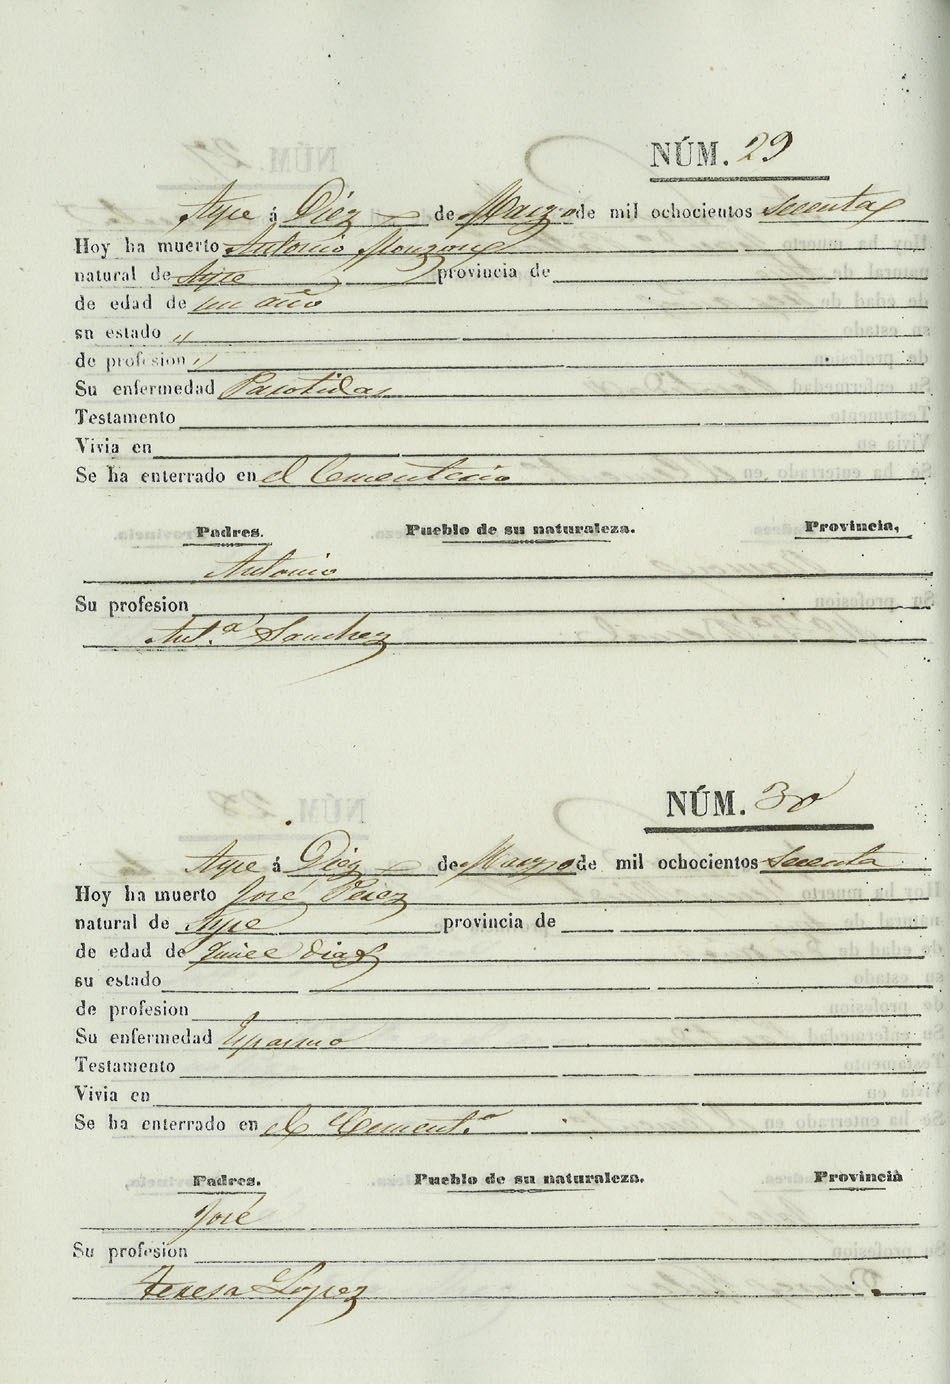 NÚM. 29
Aspe á Diez de Marzo de mil ochocientos sesenta
Hoy ha muerto Antonio Monzong
natural de Aspe provincia de
de edad de un año
sn estado "
de profesion "
Su enfermedad Parotidas
Testamento
Vivia en
Se ha enterrado en el Cementerio
Padres. Pueblo de su naturaleza. Provincia,
Antonio
Su profesion
Ant.ª Sanchez
NÚM. 30
Aspe á Diez de Marzo de mil ochocientos sesenta
Hoy ha muerto José Perez
natural de Aspe provincia de
de edad de quince dias
su estado
de profesion
Su enfermedad Espasmo
Testamento
Vivia en
Se ha enterrado en el Cement.º
Padres. Pueblo de su naturaleza. Provincia
José
Su profesion
Teresa Lopez